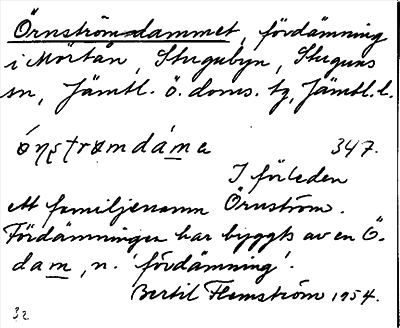 Örnströmdammet, fördämning
i Mörtån, Stugubyn, Stuguns
sn, Jämtl. ö. doms. tg, Jämtl. l.
347.
I förleden
ett familjenamn Örnström.
Fördämningen har byggts av en Ö.
dam, n. 'fördämning'.
Bertil Flemström 1954.
32